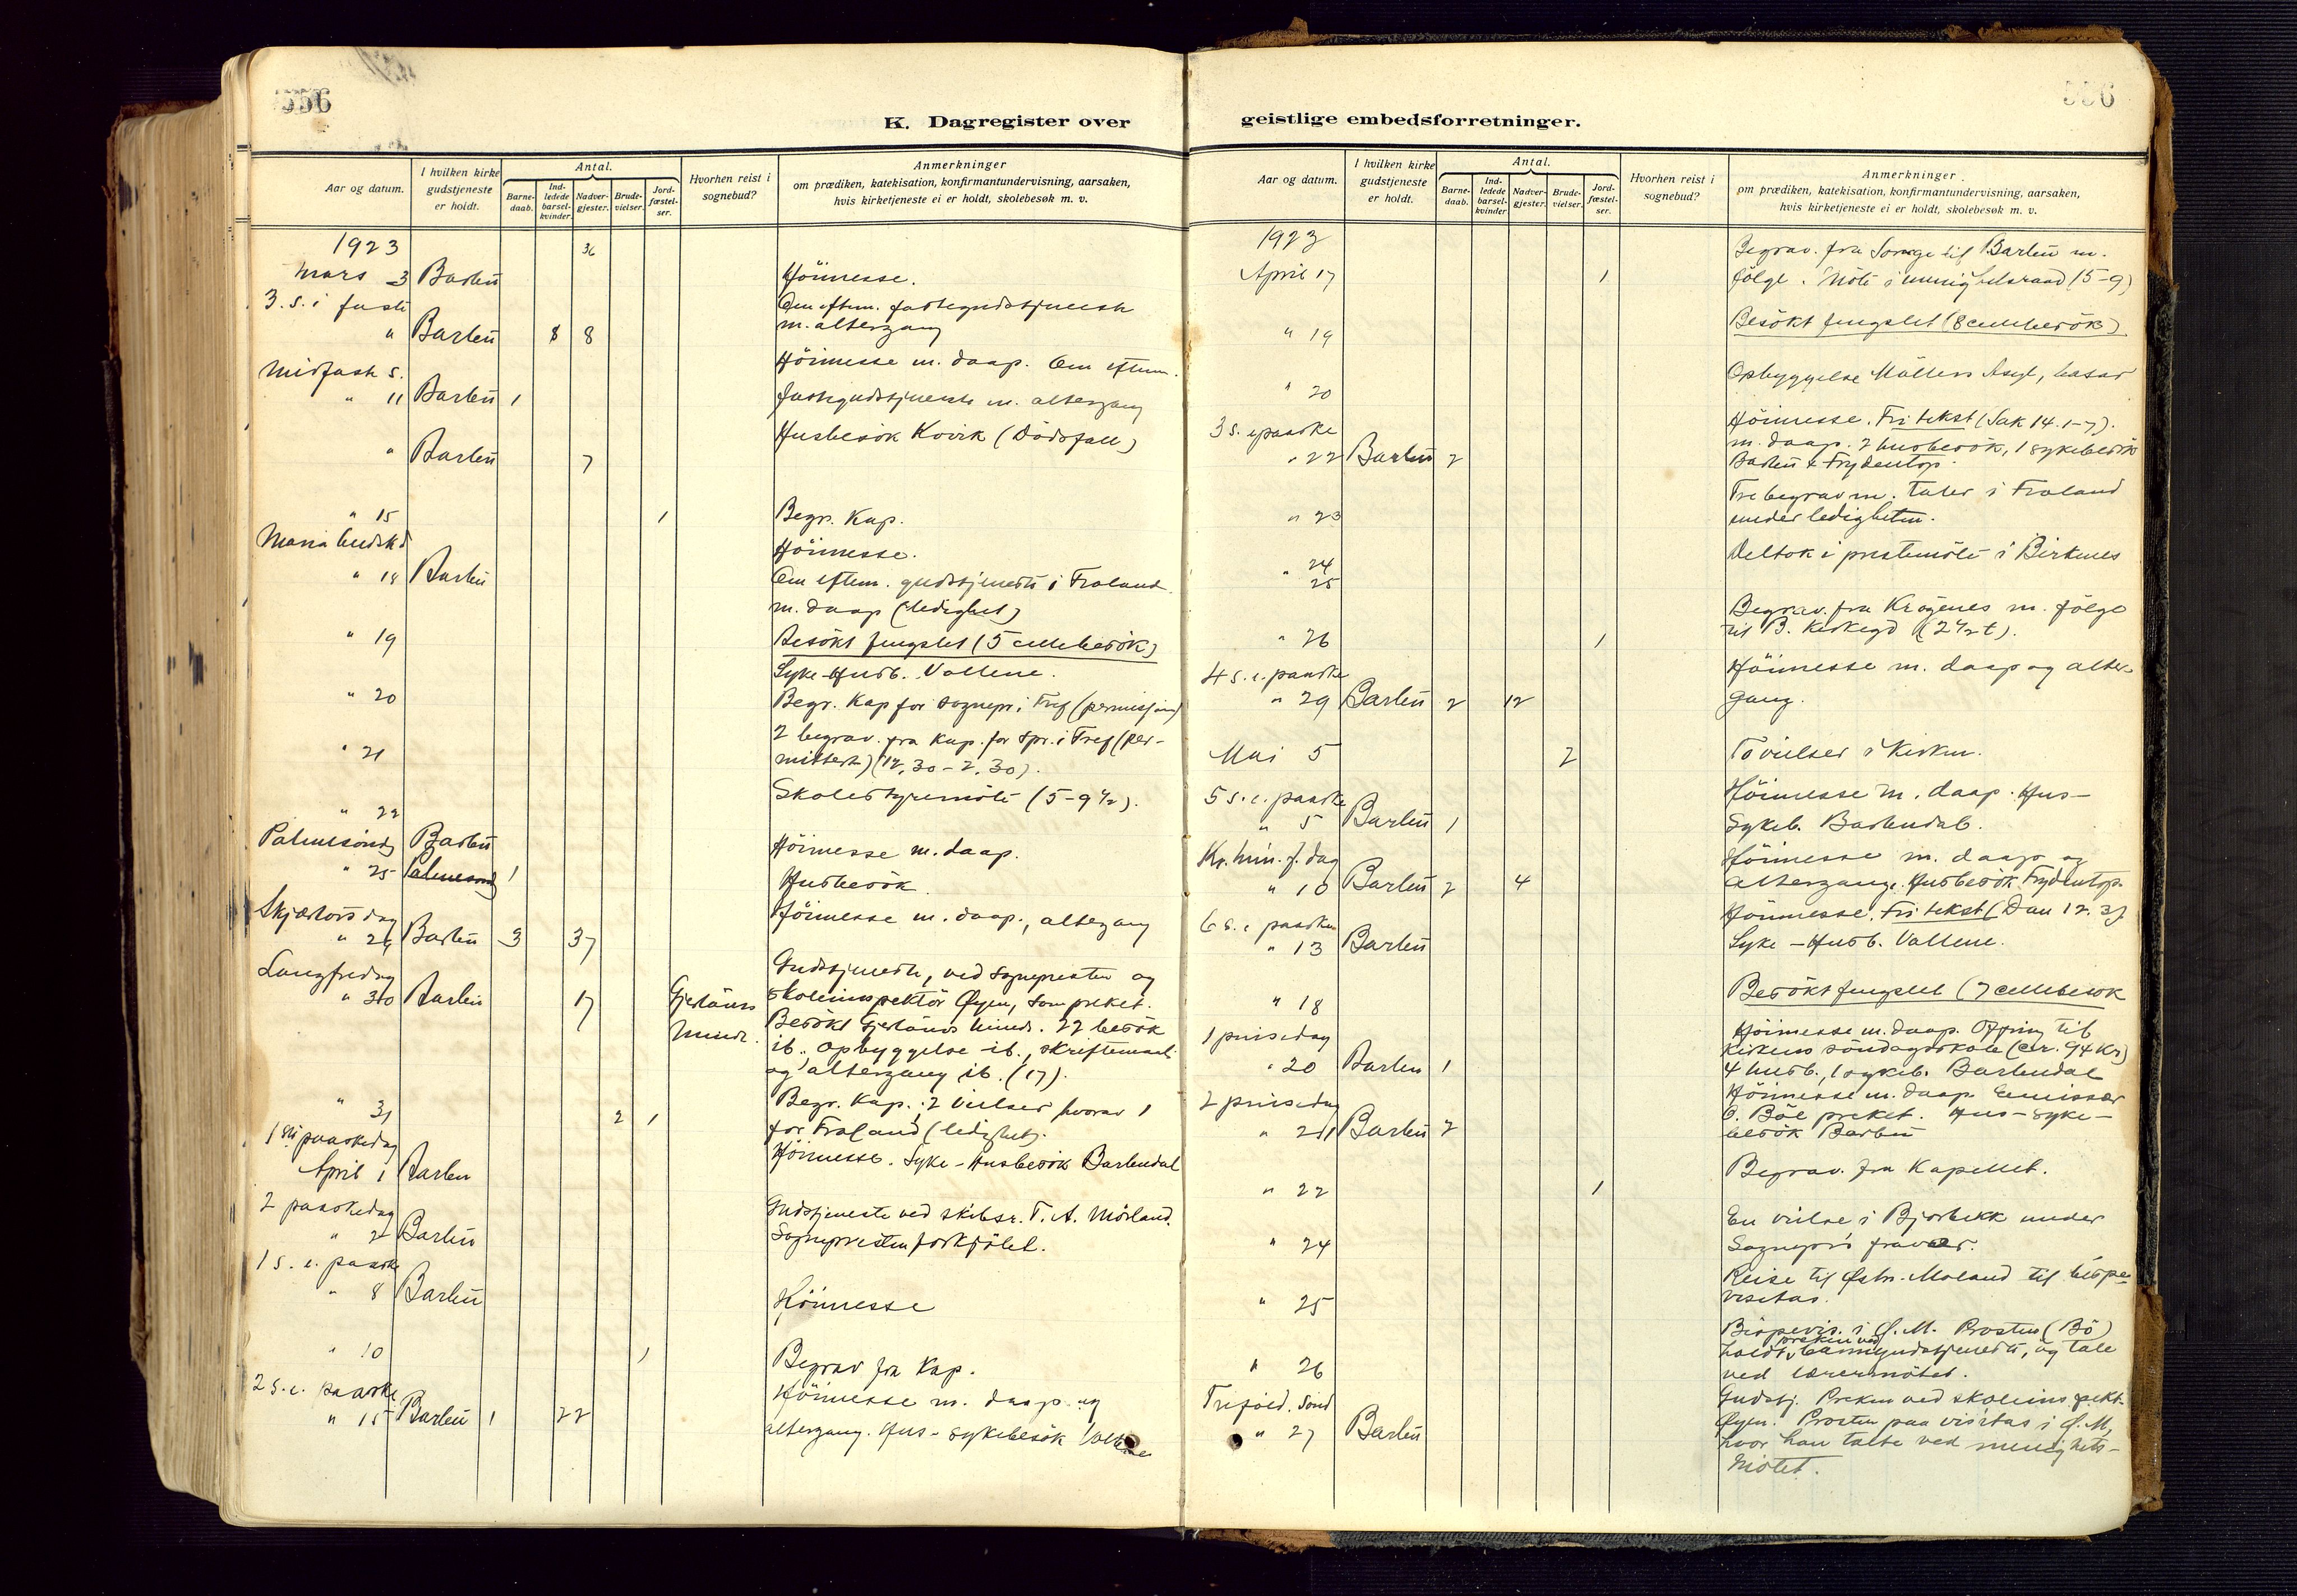 556
K. Dagregister over
Aar og datum.
I hvilken kirke gudstjeneste er holdt.
Antal.
Barne-daab.
Ind-ledede barsel-kvinder.
Nadver-gjester.
Brude-vielser.
Jord-fæstel-ser.
Hvorhen reist i sognebud?
Anmerkninger
om prædiken, katekisation, konfirmantundervisning, aarsaken,
hvis kirketjeneste ei er holdt, skolebesøk m. v.
1923 36
mars 3 Barbu Höimesse.
3. s. i faste Om eftm. fastegudstjeneste
" Barbu 8 8 m. altergang
Midfaste s. Höimesse m. daap. Om eftm.
" 11 Barbu 1 fastegudstjeneste m. altergang
" Barbu 7 Husbesök Kovik (Dödsfall)
" 15 1 Begr. Kap.
Maria budsk d Höimesse.
" 18 Barbu Om eftm. gudstjeneste i Froland
m. daap (ledighet)
" 19 Besökt fengslet (5 cellebesök)
Syke-Husb. Vollene.
" 20 Begr. Kap for sognepr. i Tref (permisjon)
" 21 2 begrav. fra Kap. for spr. i Tref (per-
mittert) (12,30-2,30).
" 22 Skolestyremöte (5-9 1/2).
Palmesöndg Barbu Höimesse m. daap.
" 25 Palmesondg 1 Husbesök.
Skjærtorsdag Höimesse m. daap., altergang
" 29 Barbu 3 37
Langfredag Gudstjeneste, ved sognepresten og
" 30 Barbu 17 Gjerlöws skoleinspektör Øyen, som preket.
Minde. Besökt Gjerlöws Minde. 22 besök
ib., Opbyggelse ib., skriftemaal
og altergang ib. (17).
" 31 2 1 Begr. Kap.; 2 vielser hvorav 1
1ste paaskedag for Froland (ledighet).
April 1 Barbu Höimesse. Syke-Husbesök Barbudal
2 paaskedag Gudstjeneste ved skibsr. T. A. Mörland.
" 2 Barbu Sognepresten forkjölet.
1 s. e. paaske
" 8 Barbu Höimesse
" 10 1 Begrav fra Kap.
2 s. e. paaske Höimesse m. daap og
" 15 Barbu 1 22 altergang. Hus-sykebesök Vollene
556
geistlige embedsforretninger.
Aar og datum.
I hvilken kirke gudstjeneste er holdt.
Antal.
Barne-daab.
Ind-ledede barsel-kvinder
Nadver-gjester.
Brude-vielser.
Jord-fæstel-ser.
Hvorhen reist i sognebud?
Anmerkninger.
om prædiken, katekisation, konfirmantundervisning, aarsaken,
hvis kirketjeneste ei er holdt, skolebesøk m. v.
1923 Begrav. fra Songe til Barbu m.
April 17 1 fölge. Möte i menighetsraad (5-9)
" 19 Besökt fengslet (8 cellebesök)
" 20 Opbyggelse Möllers Asyl, basar
3 s. e paaske Höimesse. Fri tekst (Sak 14. 1-7).
" 22 Barbu 2 m. daap. 2 husbesök, 1 sykebesök
Barbu & Frydentop.
" 23 Tre begrav m. taler i Froland
under ledigheten.
" 24 Deltok i prestemöte i Birkenes
25
" 26 1 Begrav. fra Krögenes m. fölge
til B. Kirkegd (2 1/2 t).
4 s. e. paaske Höimesse m. daap og alter-
" 29 Barbu 2 12 gang.
Mai 5 2 To vielser i Kirken.
5 s. e. paaske Höimesse m. daap. Hus-
" 5 Barbu 1 Sykeb. Barbudal.
Kr. him. f. dag Höimesse m. daap og
" 10 Barbu 2 4 altergang. Husbesök Frydentop.
6 s. e paaske Höimesse. Fri tekst (Dan 12. 3)
" 13 Barbu Syke-Husb. Vollene.
" 18 Besökt fengslet (7 cellebesök
1 pinsedag Höimesse m. daap. Offring til
" 20 Barbu 1 Kirkens söndagsskole (cr. 94 Kr)
4 husb., 1 sykeb. Barbudal
2 pinsedag Höimesse m. daap. Emissær
" 21 Barbu 2 O. Böe preket. Hus-syke-
besök Barbu
" 22 1 Begrav. fra Kapellet.
" 24 En vielse i Bjorbekk under
Sognepr's fravær.
" 25 Reise til Østr. Moland til bispe-
visitas.
" 26 Bispevis. i Ø. M. Prosten (Bö)
holdt preken ved barnegudstjeneste, og tale
ved lærermötet.
Trefold. Sönd Gudstj. Preken ved skoleinspekt.
" 27 Barbu Øyen. Prosten paa visitas i Ø. M,
hvor han talte ved menighets-
mötet.